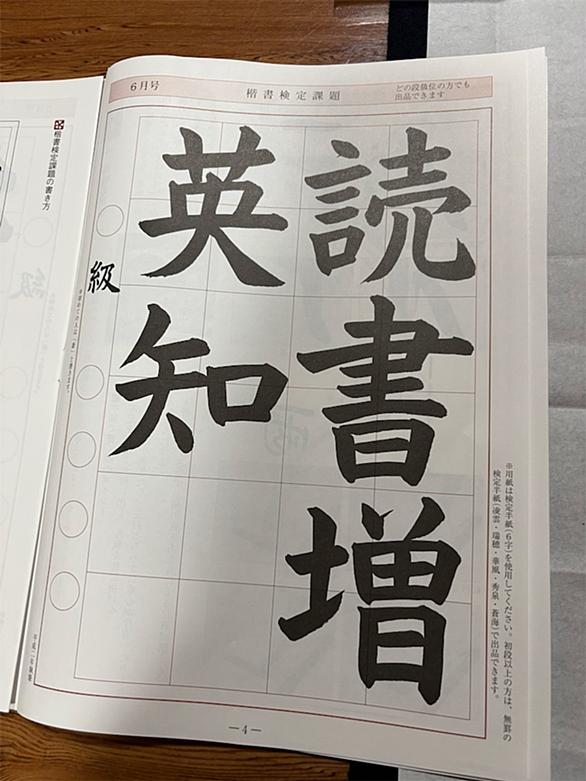 6月号
楷書検定課題
どの段級位の方でも
出品できます
読書増
英知
級
※用紙は検定半紙(6字)を使用してください。初段以上の方は、無罫の
検定半紙(凌雲・瑞穂・華風・秀泉・蒼海)で出品できます。
楷書検定課題の書き方
—4—